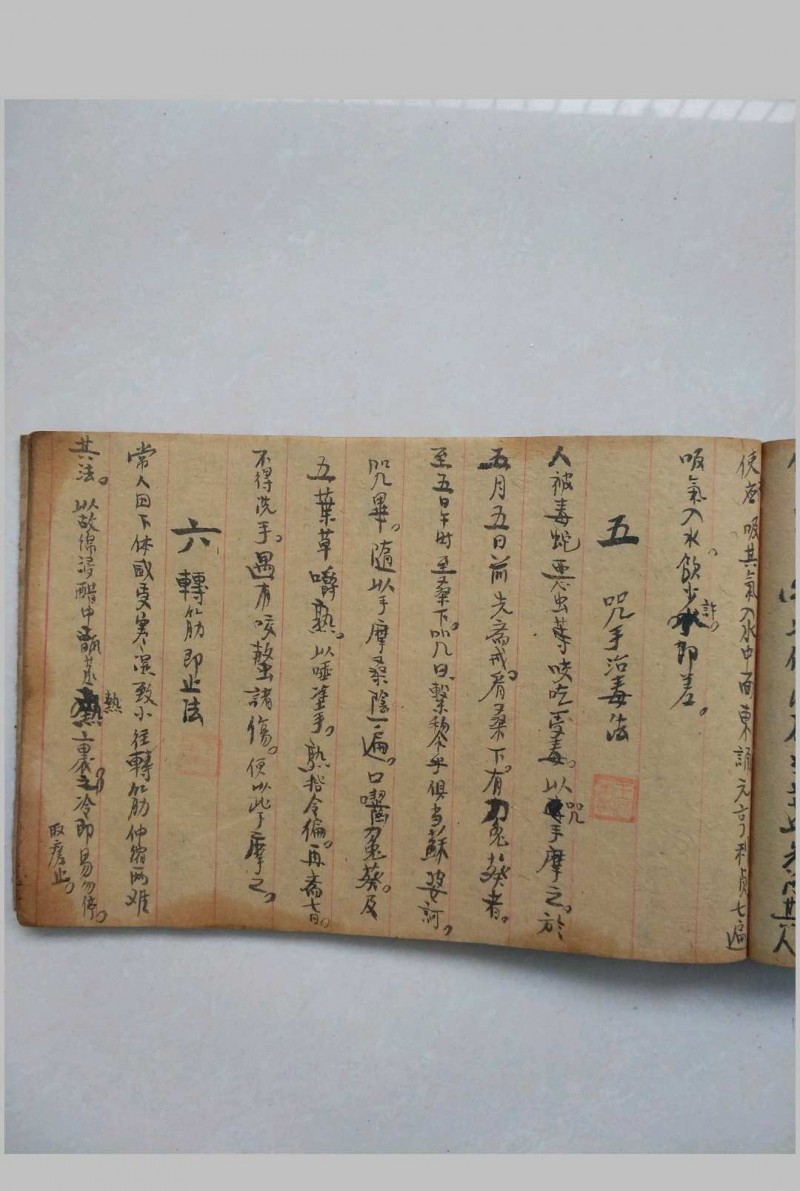 便虐吸其氣入水中面東誦元亨利貞七遍
吸氣入水。飲少許。即差。
五 咒手治毒法
人被毒蛇惡虫等咬吃受毒。以咒手摩之。於
五月五日前先斋戒。看桑下。有菟葵者。
至五日午时至桑下。咒曰。繫黎乎俱当蘇婆訶。
咒畢。随以手摩桑陰一遍。口嚙菟葵。及
五葉草嚼熟。以唾塗手。熟指令徧。再斋七日。
不得洗手。遇有咬螫諸傷。便以此手摩之。
六 轉筋即止法
常人因下体感受寒湿致小往轉筋伸縮两难
其法。以故绵浸醋中甑蒸熱裹之冷即易勿停。
取瘥止。